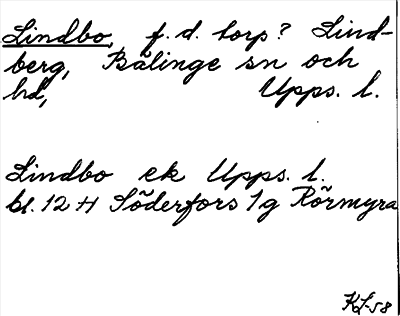 Lindbo, f.d. torp? Lind-
berg, Bälinge sn och
hd, Upps. l.
Lindbo ek Upps. l.
bl. 12 H Söderfors 1g Rörmyra
KL-58